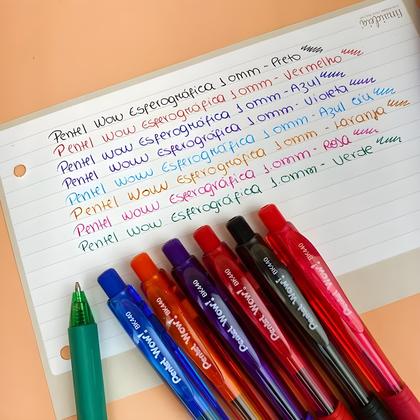 imaídea
Pentel Wow Esferográfica 1.0mm - Preto
Pentel Wow Esferográfica 1.0mm - Vermelho
Pentel Wow Esferográfica 1.0mm - Azul
Pentel Wow Esferográfica 1.0mm - Violeta
Pentel Wow Esferográfica 1.0mm - Azul céu
Pentel Wow Esferográfica 1.0mm - Laranja
Pentel Wow Esferográfica 1.0mm - Rosa
Pentel Wow Esferográfica 1.0mm - Verde
Pentel Wow! BK440
Pentel Wow! BK440
Pentel Wow! BK440
Pentel Wow! BK440
Pentel Wow! BK440
Pentel Wow! BK440